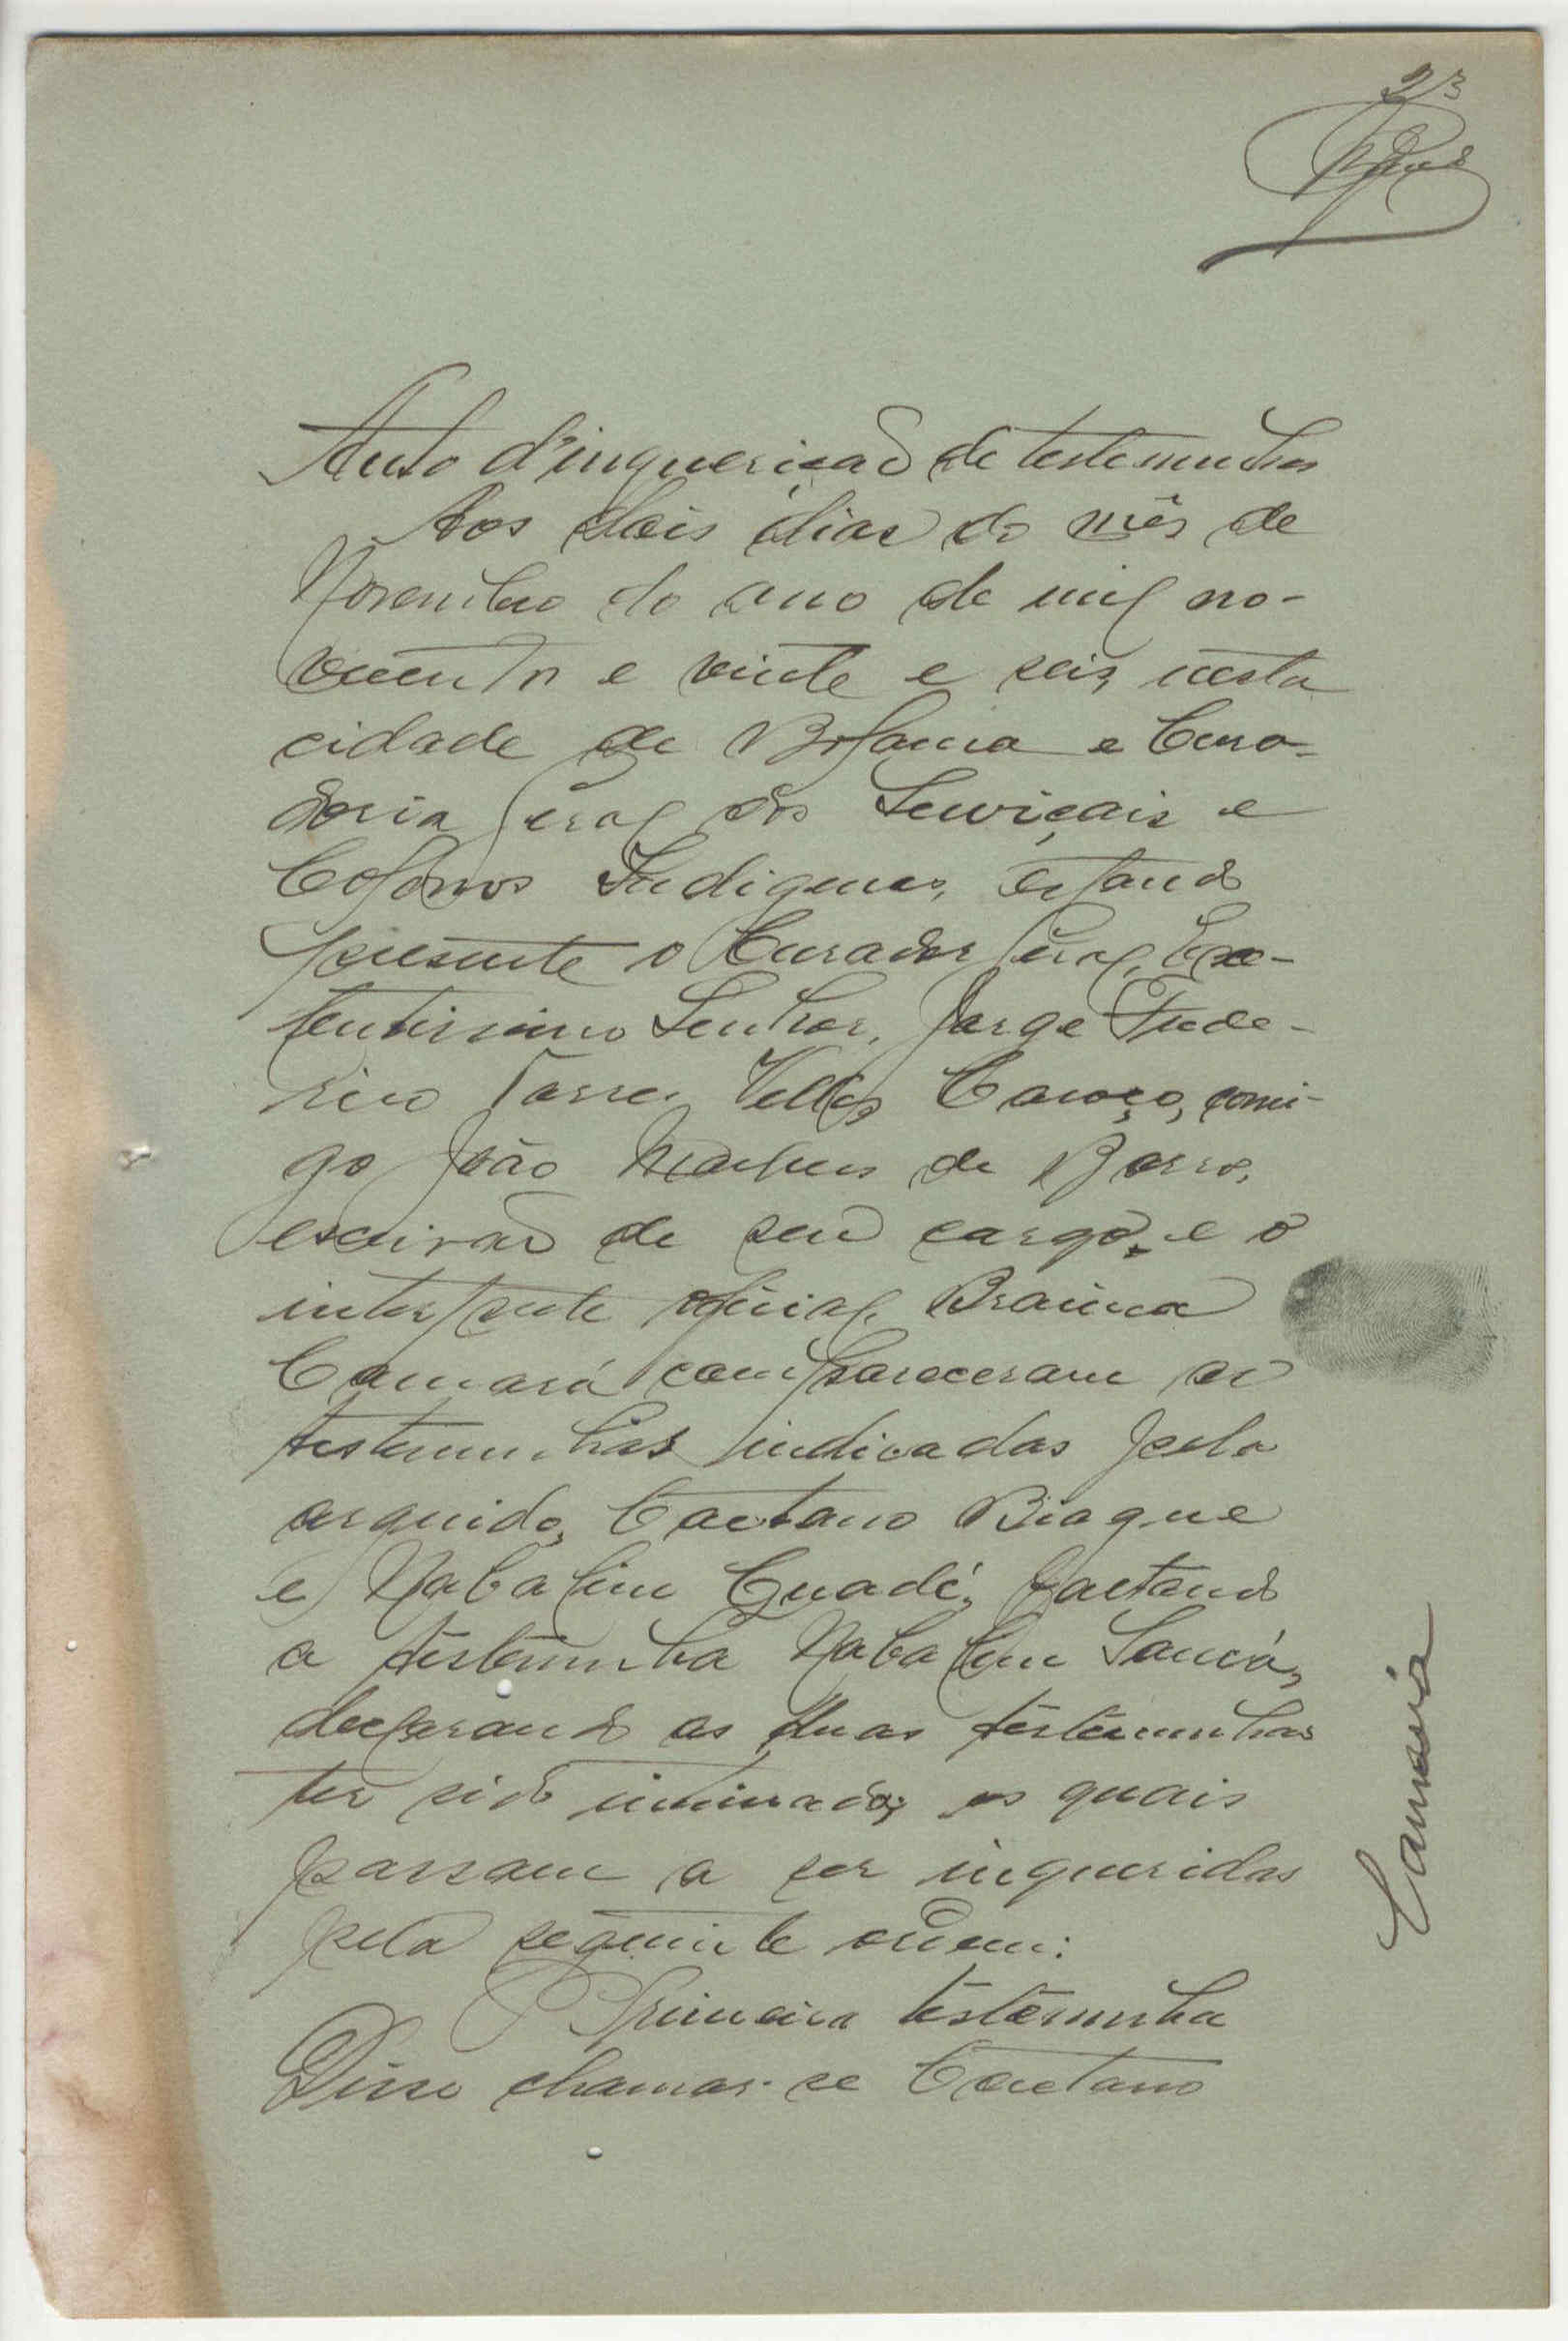 23
Auto d'inquerição de testemunhas
Aos dois dias do mês de
Novembro do ano de mil no-
vecentos e vinte e seis, nesta
cidade de Bolama e Cura-
doria Geral dos Serviçais e
Colonos Indigenas, estando
presente o Curador Geral, Exce-
lentissimo Senhor, Jorge Frede-
rico Torres Vellez Caroço, comi-
go João Marques de Barros,
escrivão de seu cargo, e o
interprete oficial, Braima
Camará compareceram as
testemunhas indicadas pelo
arguido, Caetano Biague
e Nabalim Guadé, faltando
a testemunha Nabalim Sancá,
declarando as duas testemunhas
ter sido intimados, os quais
passam a ser inqueridas
pela seguinte ordem:
Primeira testemunha
Disse chamar-se Caetano
Camará